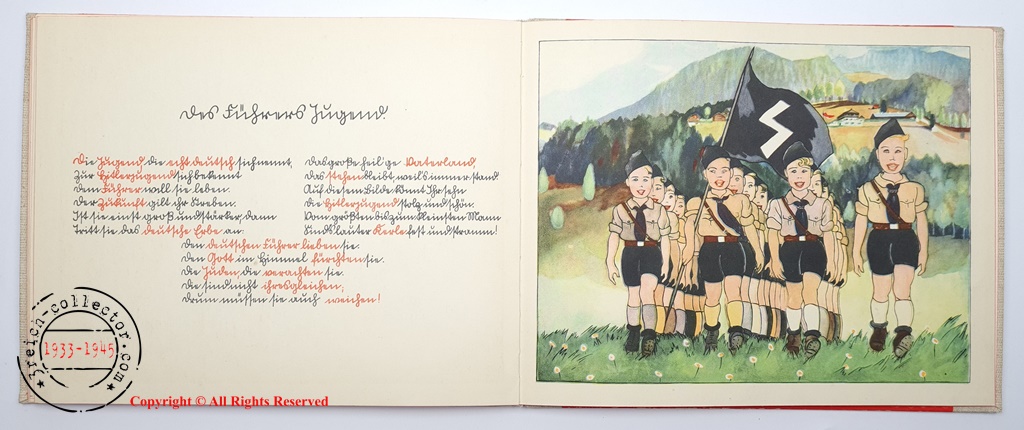 Des Führers Jugend
Die Jugend, die echt deutsch sich nennt,
Zur Hitlerjugend sich bekennt
Dem Führer will sie leben.
Der Zukunft gilt ihr Streben.
Ist sie einst groß und stärker, dann
Tritt sie das deutsche Erbe an:
Das große, heil'ge Vaterland,
Das stehen bleibt, weil's immer stand
Auf diesem Bilde könnt Ihr sehn
Die Hitlerjugend stolz und schön.
Vom größten bis zum kleinsten Mann
Sind's lauter Kerle fest und stramm!
Den deutschen Führer lieben sie.
Den Gott im Himmel fürchten sie.
Die Juden, die verachten sie.
Die sind nicht ihresgleichen;
Drum müssen sie auch weichen!
3reich-collector.com
1933-1945
Copyright © All Rights Reserved